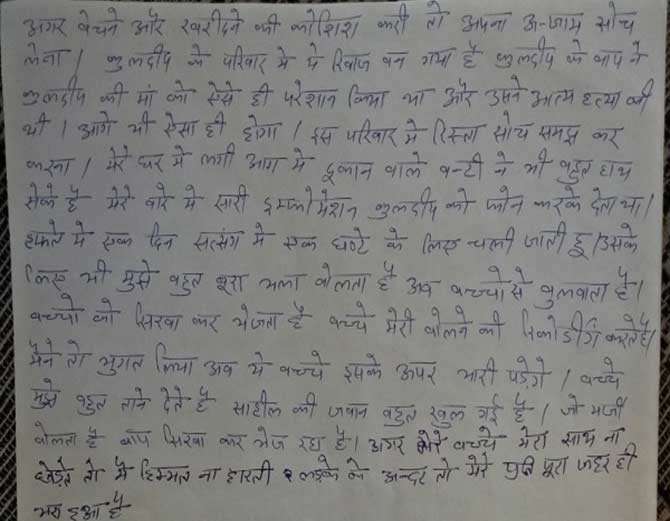 अगर बेचने और खरीदने की कोशिश करी तो अपना अन्जाम सोच
लेना। कुलदीप के परिवार मे ये रिवाज बन गया है कुलदीप के बाप ने
कुलदीप की मां को ऐसे ही परेशान किया था और उसने आत्म हत्या की
थी। आगे भी ऐसा ही होगा। इस परिवार मे रिस्ता सोच समझ कर
करना। मेरे घर मे लगी आग मे दुकान वाले बन्टी ने भी बहुत हाथ
सेके है मेरे बारे मे सारी इन्फोर्मेशन कुलदीप को फोन करके देता था।
हफ्ते मे एक दिन सत्संग मे एक घण्टे के लिए चली जाती हू। उसके
लिए भी मुझे बहुत बुरा भला बोलता है अब बच्चो से बुलवाता है।
बच्चो को सिखा कर भेजता है बच्चे मेरी बोलने की रिकोर्डींग करते है।
मैने तो भुगत लिया अब ये बच्चे इसके ऊपर भारी पडेगे। बच्चे
मुझे बहुत ताने देते है साहील की जबान बहुत खुल गई है। जो मर्जी
बोलता है बाप सिखा कर भेज रहा है। अगर मेरे बच्चे मेरा साथ ना
छोडते तो मै हिम्मत ना हारती लडके के अन्दर तो मेरे प्रति पूरा जहर ही
भरा हुआ है